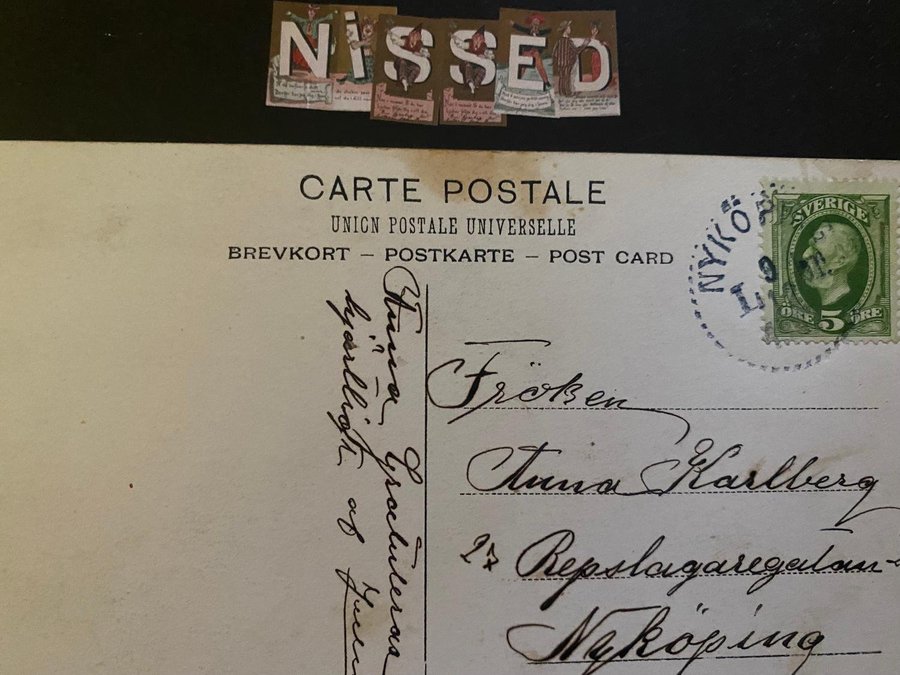 NiSSED
CARTE POSTALE
UNION POSTALE UNIVERSELLE
BREVKORT – POSTKARTE – POST CARD
NYKÖP
9
SVERIGE
ÖRE 5 ÖRE
Fröken
Anna Karlberg
27 Repslagaregatan
Nyköping
Anna Gratuleras
hjertligt af